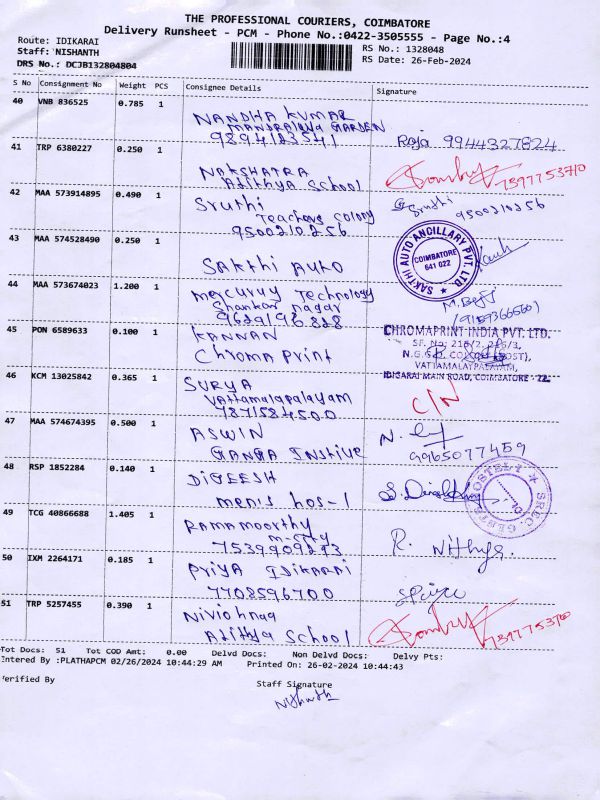 THE PROFESSIONAL COURIERS, COIMBATORE
Delivery Runsheet - PCM - Phone No.:0422-3505555 - Page No.:4
Route: IDIKARAI
Staff: NISHANTH
DRS No.: DCJB132804804
RS No.: 1328048
RS Date: 26-Feb-2024
S No Consignment No Weight PCS Consignee Details Signature
40 VNB 836525 0.785 1
NANDHA KUMAR
GARDEN
9894183541
Raja 9944327824
41 TRP 6380227 0.250 1
NAKSHATRA
Adithya School
7397753710
42 MAA 573914895 0.490 1
Sruthi
Teachers colony
9500210256
Sruthi
9500210256
43 MAA 574528490 0.250 1
SAKTHI AUTO
SAKTHI AUTO ANCILLARY PVT. LTD.
COIMBATORE
641 022
44 MAA 573674023 1.200 1
Mercuruy Technology
Shankar nagar
9629196828
45 PON 6589633 0.100 1
KANNAN
Chroma Print
CHROMAPRINT INDIA PVT. LTD.
VATTAMALAIPALAYAM,
IDIGARAI MAIN ROAD, COIMBATORE - 22.
46 KCM 13025842 0.365 1
SURYA
Vattamalapalayam
7871584500
C/N
47 MAA 574674395 0.500 1
ASWIN
GANGA Instive
9965077459
48 RSP 1852284 0.140 1
DIGEESH
men's hos-1
49 TCG 40866688 1.405 1
Ramamoorthy
7539909293
R. Nithya.
50 IXM 2264171 0.185 1
Priya IDIKARAI
7708596700
51 TRP 5257455 0.390 1
Adithya School
Tot Docs: 51 Tot COD Amt: 0.00 Delvd Docs: Non Delvd Docs: Delvy Pts:
Entered By :PLATHAPCM 02/26/2024 10:44:29 AM Printed On: 26-02-2024 10:44:43
Verified By
Staff Signature
Nishanth